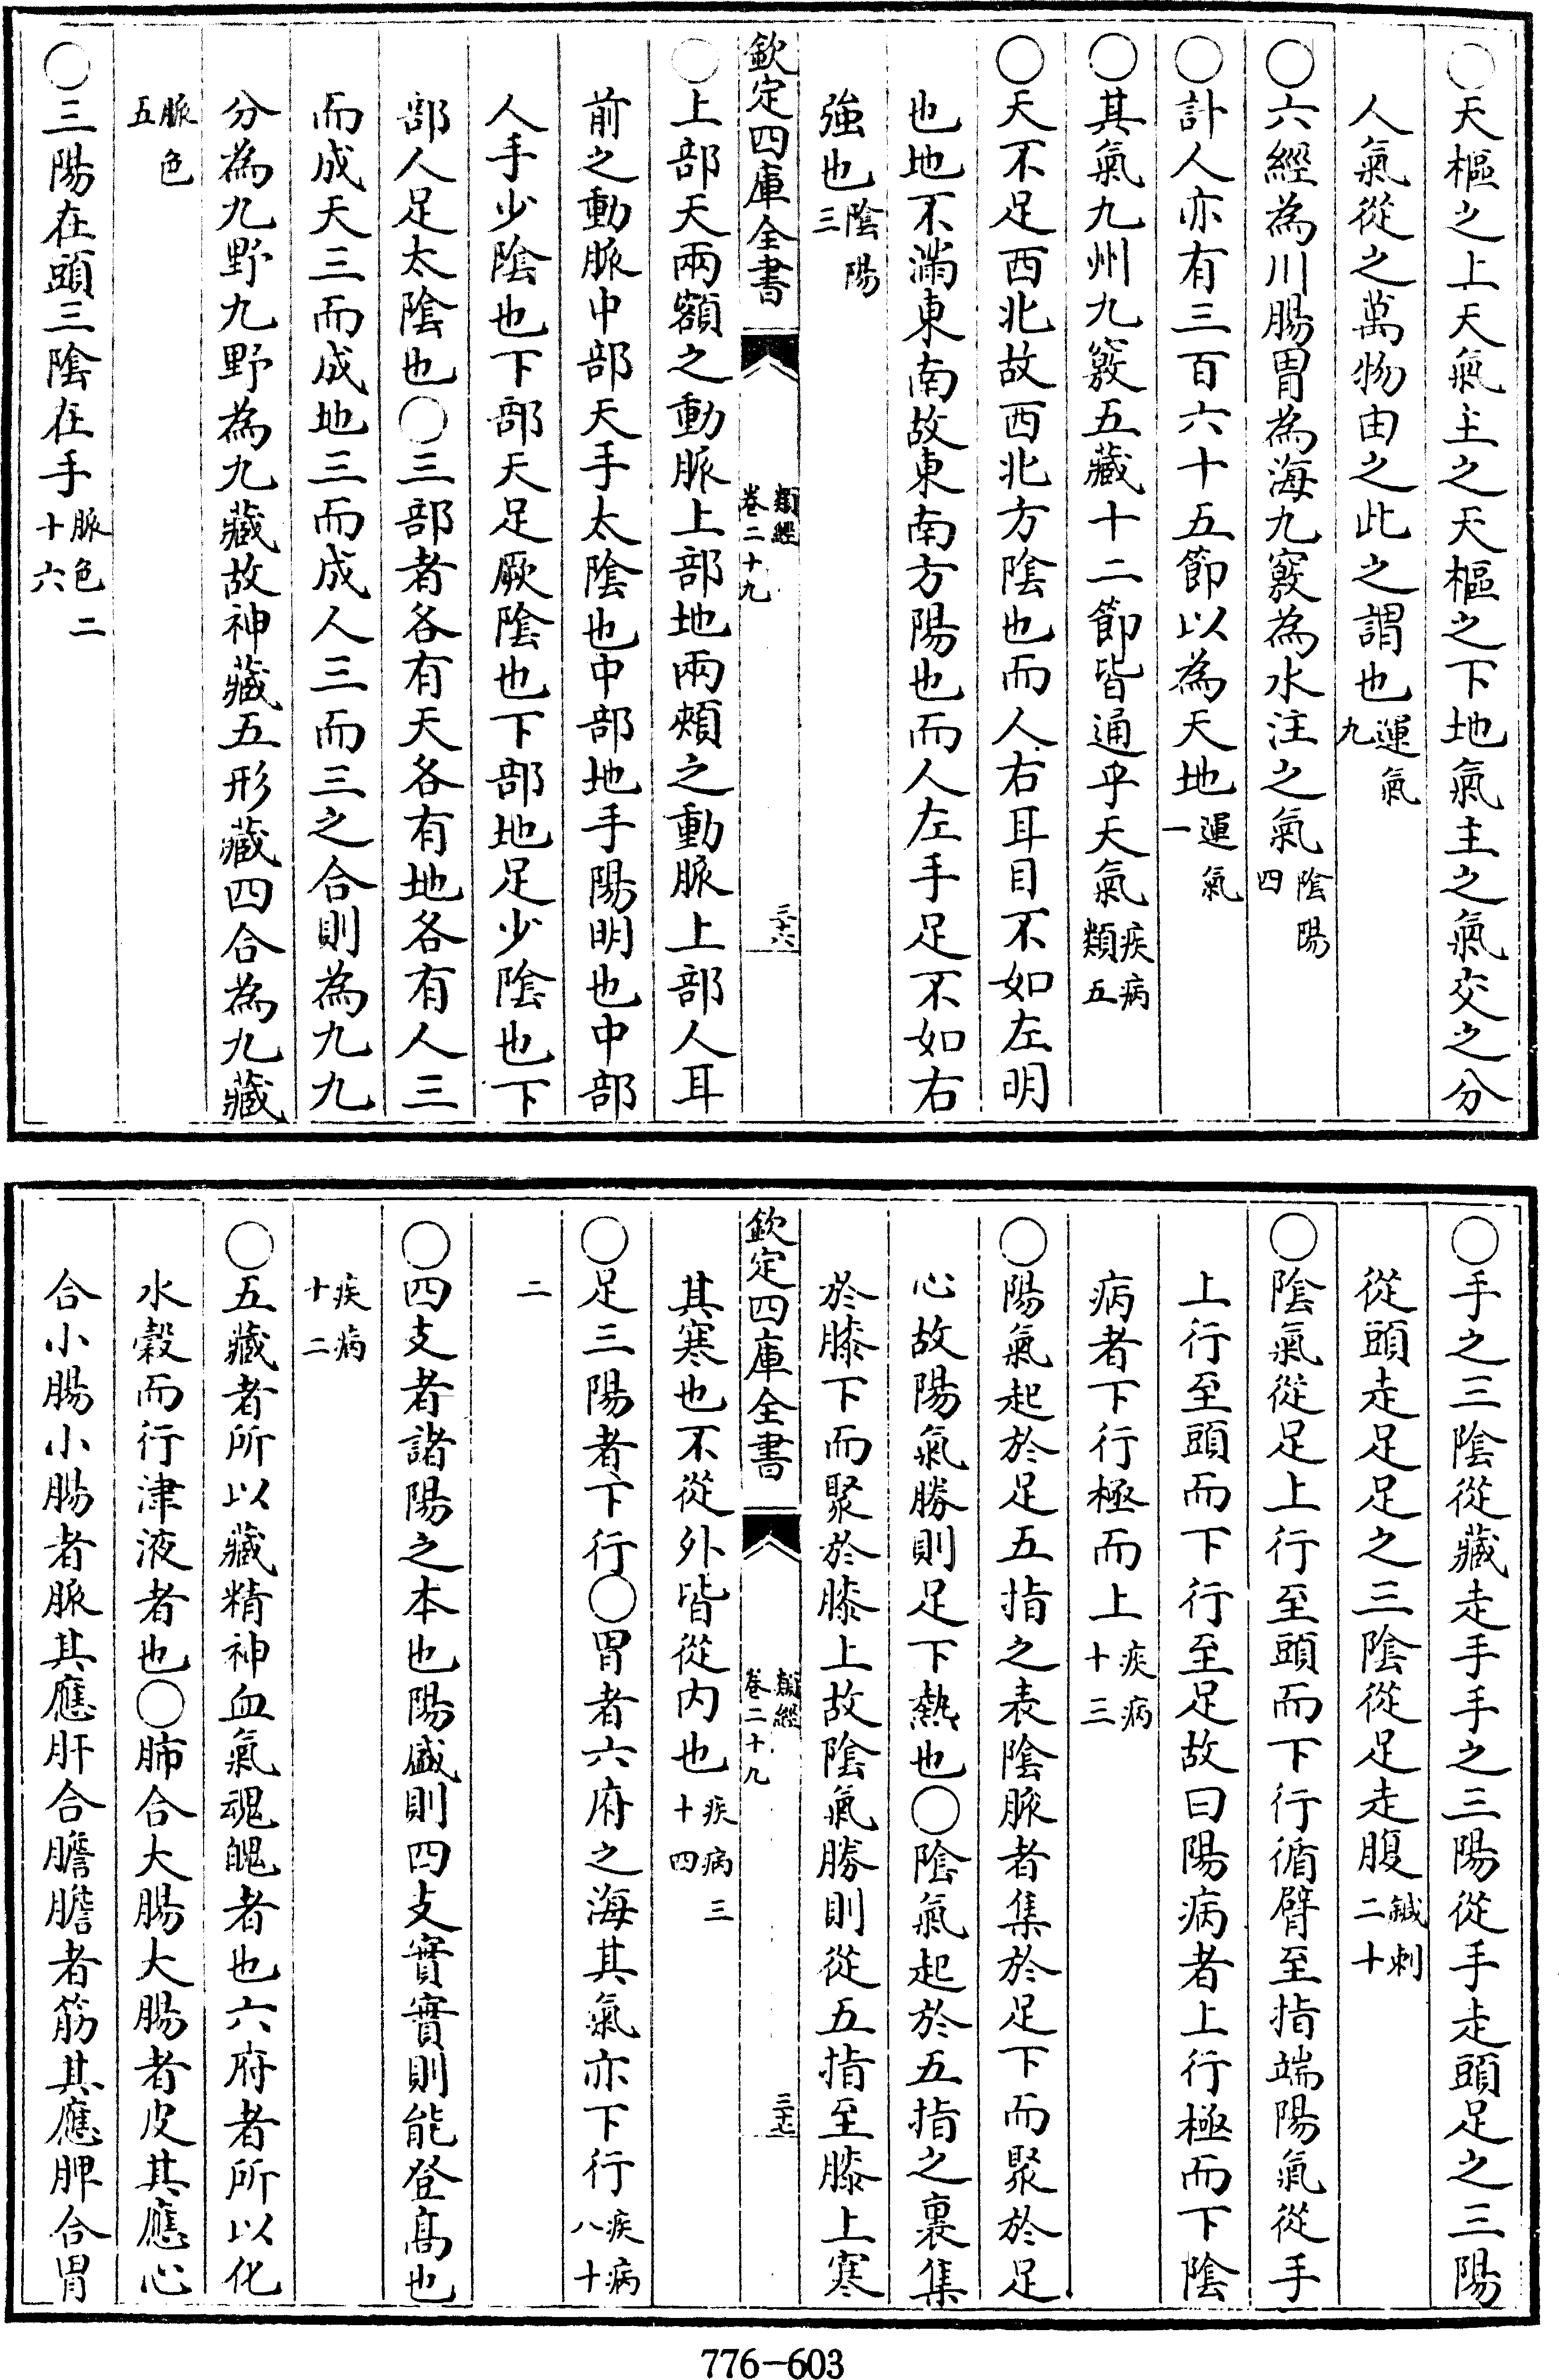 〇天樞之上天氣主之天樞之下地氣主之氣交之分
人氣從之萬物由之此之謂也運氣九
〇六經為川腸胃為海九竅為水注之氣陰陽四
〇計人亦有三百六十五節以為天地運氣一
〇其氣九州九竅五藏十二節皆通乎天氣疾病類五
〇天不足西北故西北方陰也而人右耳目不如左明
也地不滿東南故東南方陽也而人左手足不如右
強也陰陽三
欽定四庫全書 類經卷二十九 三十六
〇上部天兩額之動脈上部地兩頰之動脈上部人耳
前之動脈中部天手太陰也中部地手陽明也中部
人手少陰也下部天足厥陰也下部地足少陰也下
部人足太陰也〇三部者各有天各有地各有人三
而成天三而成地三而成人三而三之合則為九九
分為九野九野為九藏故神藏五形藏四合為九藏
脈色五
〇三陽在頭三陰在手脈色二十六
〇手之三陰從藏走手手之三陽從手走頭足之三陽
從頭走足足之三陰從足走腹鍼刺二十
〇陰氣從足上行至頭而下行循臂至指端陽氣從手
上行至頭而下行至足故曰陽病者上行極而下陰
病者下行極而上疾病十三
〇陽氣起於足五指之表陰脈者集於足下而聚於足
心故陽氣勝則足下熱也〇陰氣起於五指之裏集
於膝下而聚於膝上故陰氣勝則從五指至膝上寒
其寒也不從外皆從内也疾病三十四
欽定四庫全書 類經卷二十九 三十七
〇足三陽者下行〇胃者六府之海其氣亦下行疾病八十
二
〇四支者諸陽之本也陽盛則四支實實則能登高也
疾病十二
〇五藏者所以藏精神血氣魂魄者也六府者所以化
水穀而行津液者也〇肺合大腸大腸者皮其應心
合小腸小腸者脈其應肝合膽膽者筋其應脾合胃
776-603